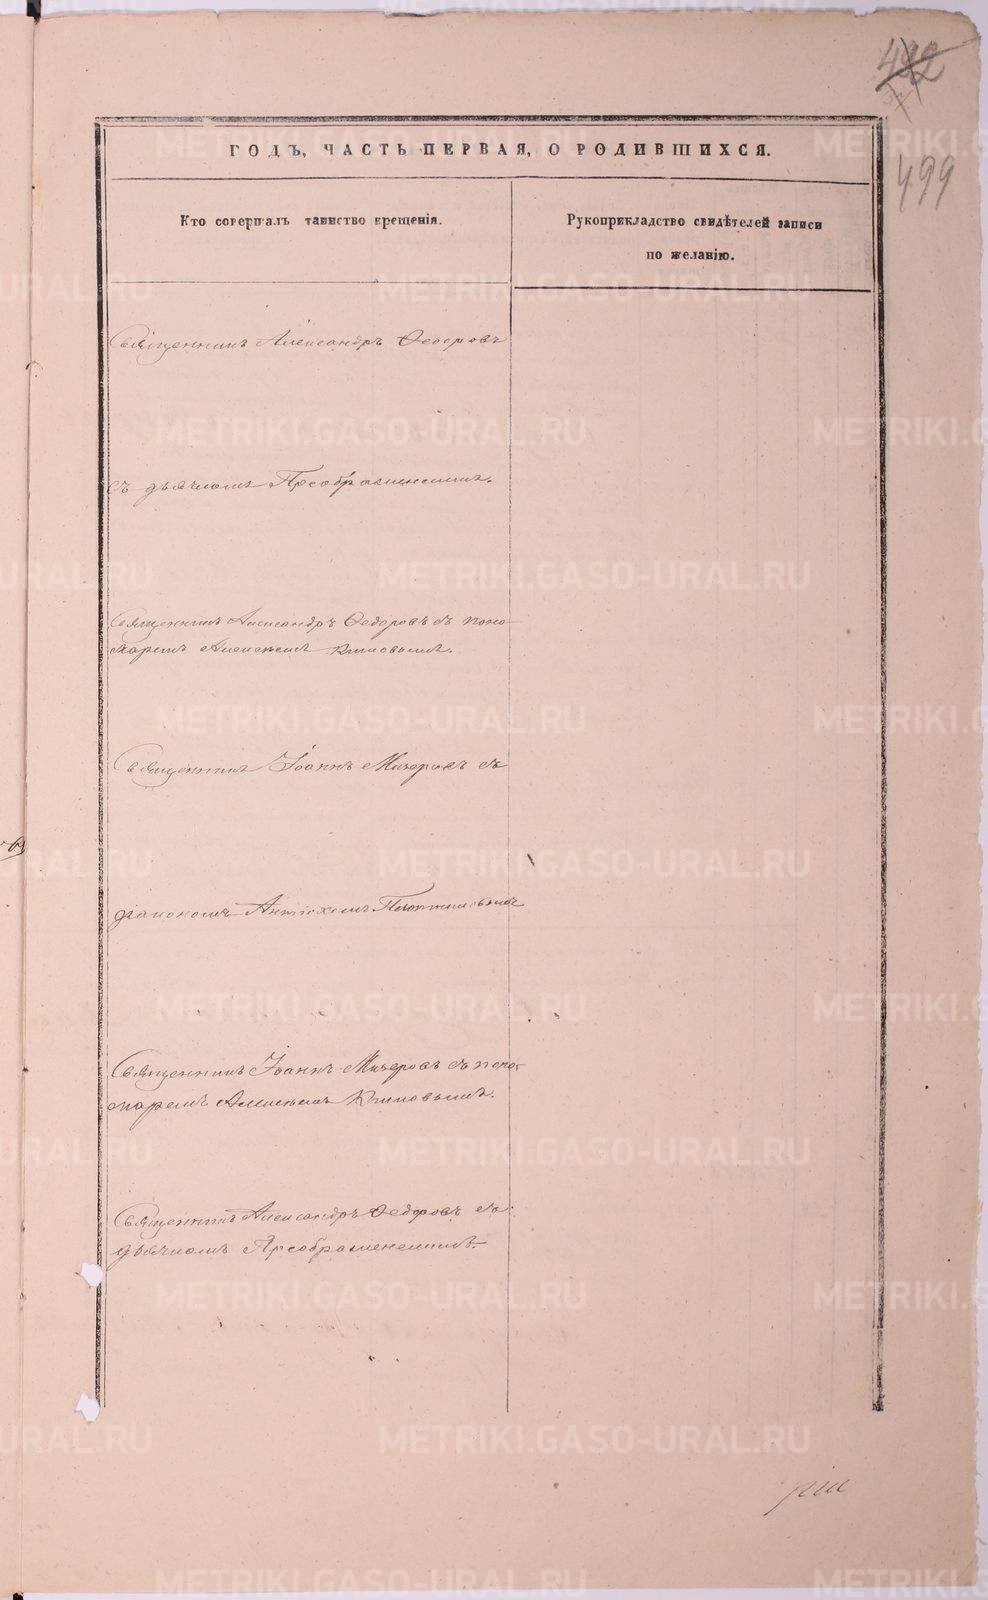 492
499
ГОДЪ, ЧАСТЬ ПЕРВАЯ, О РОДИВШИХСЯ.
Кто совершалъ таинство крещенія.
Рукоприкладство свидѣтелей записи
по желанію.
Священникъ Александръ Ѳедоровъ
съ дьячкомъ Преображенскимъ.
Священникъ Александръ Ѳедоровъ съ поно-
маремъ Алексѣемъ Климовымъ.
Священникъ Іоаннъ Мичеровъ съ
діакономъ Антіохомъ
Священникъ Іоаннъ Мичеровъ съ поно-
маремъ Алексѣемъ Климовымъ.
Священникъ Александръ Ѳедоровъ съ
дьячкомъ Преображенскимъ.
METRIKI.GASO-URAL.RU